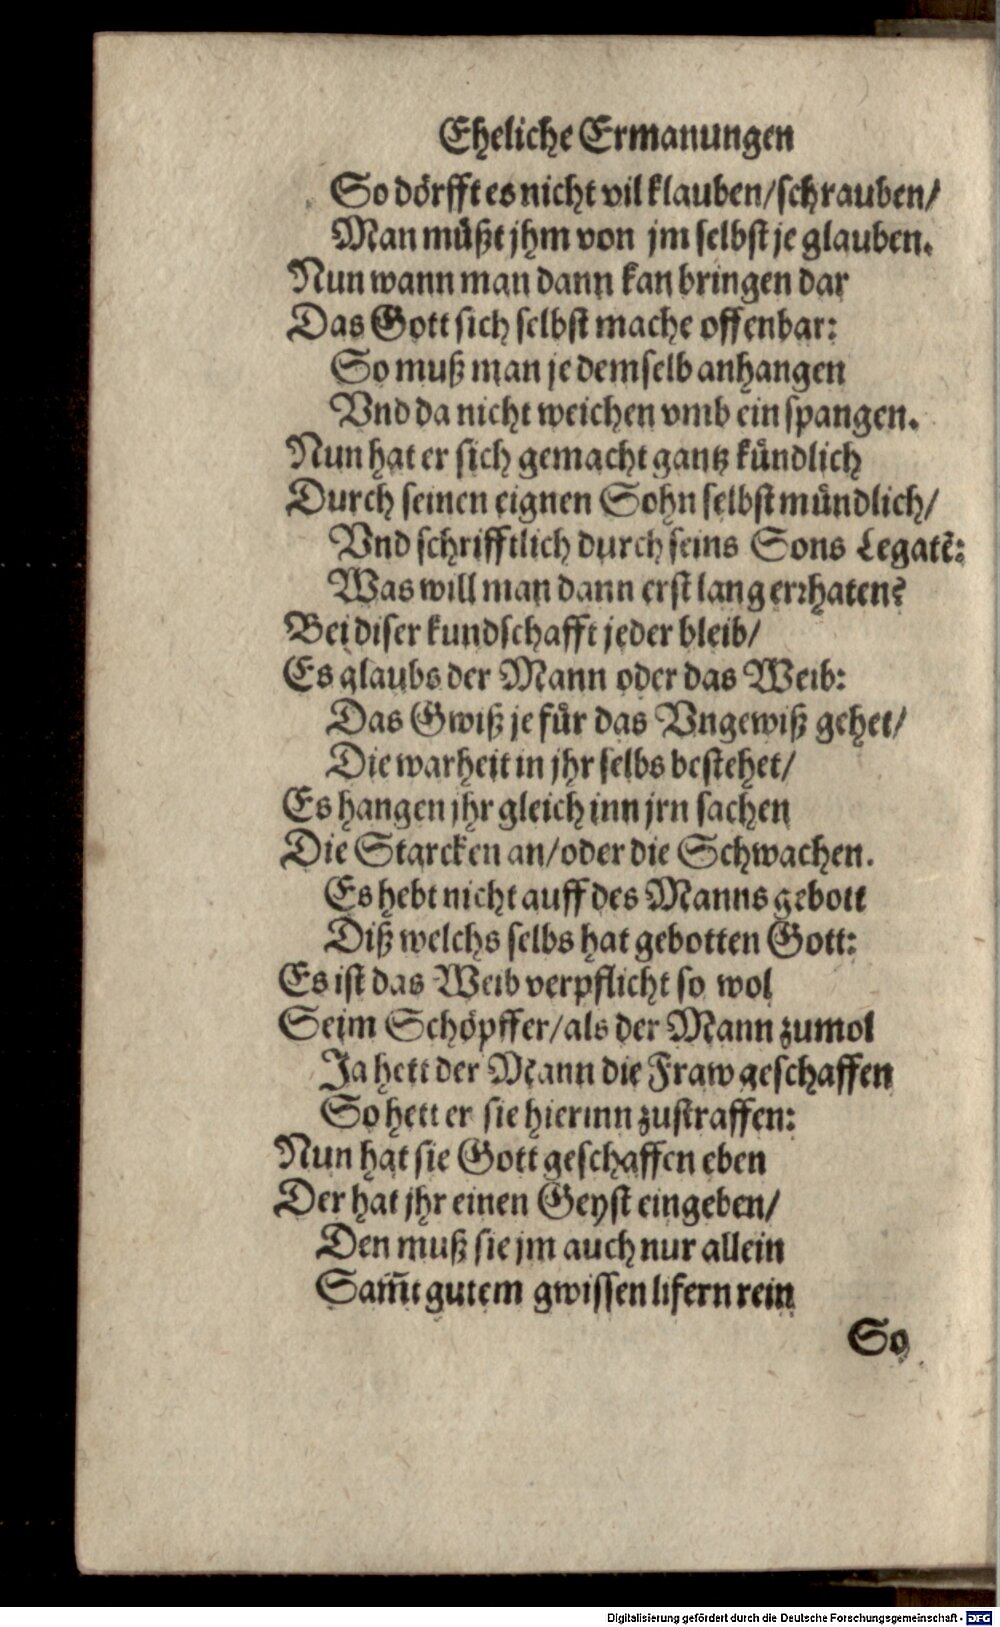 Eheliche Ermanungen
So dörfft es nicht vil klauben/schrauben/
Man müßt jhm von jm selbst je glauben.
Nun wann man dann kan bringen dar
Das Gott sich selbst mache offenbar:
So muß man je demselb anhangen
Vnd da nicht weichen vmb ein spangen.
Nun hat er sich gemacht gantz kündlich
Durch seinen eignen Sohn selbst mündlich/
Vnd schrifftlich durch seins Sons Legatē:
Was will man dann erst lang errhaten?
Bei diser kundschafft jeder bleib/
Es glaubs der Mann oder das Weib:
Das Gwiß je für das Vngewiß gehet/
Die warheit in jhr selbs bestehet/
Es hangen jhr gleich inn jrn sachen
Die Starcken an/oder die Schwachen.
Es hebt nicht auff des Manns gebott
Diß welchs selbs hat gebotten Gott:
Es ist das Weib verpflicht so wol
Seim Schöpffer/als der Mann zumol
Ja hett der Mann die Fraw geschaffen
So hett er sie hierinn zustraffen:
Nun hat sie Gott geschaffen eben
Der hat jhr einen Geyst eingeben/
Den muß sie jm auch nur allein
Sam̄t gutem gwissen lifern rein
So
Digitalisierung gefördert durch die Deutsche Forschungsgemeinschaft - DFG